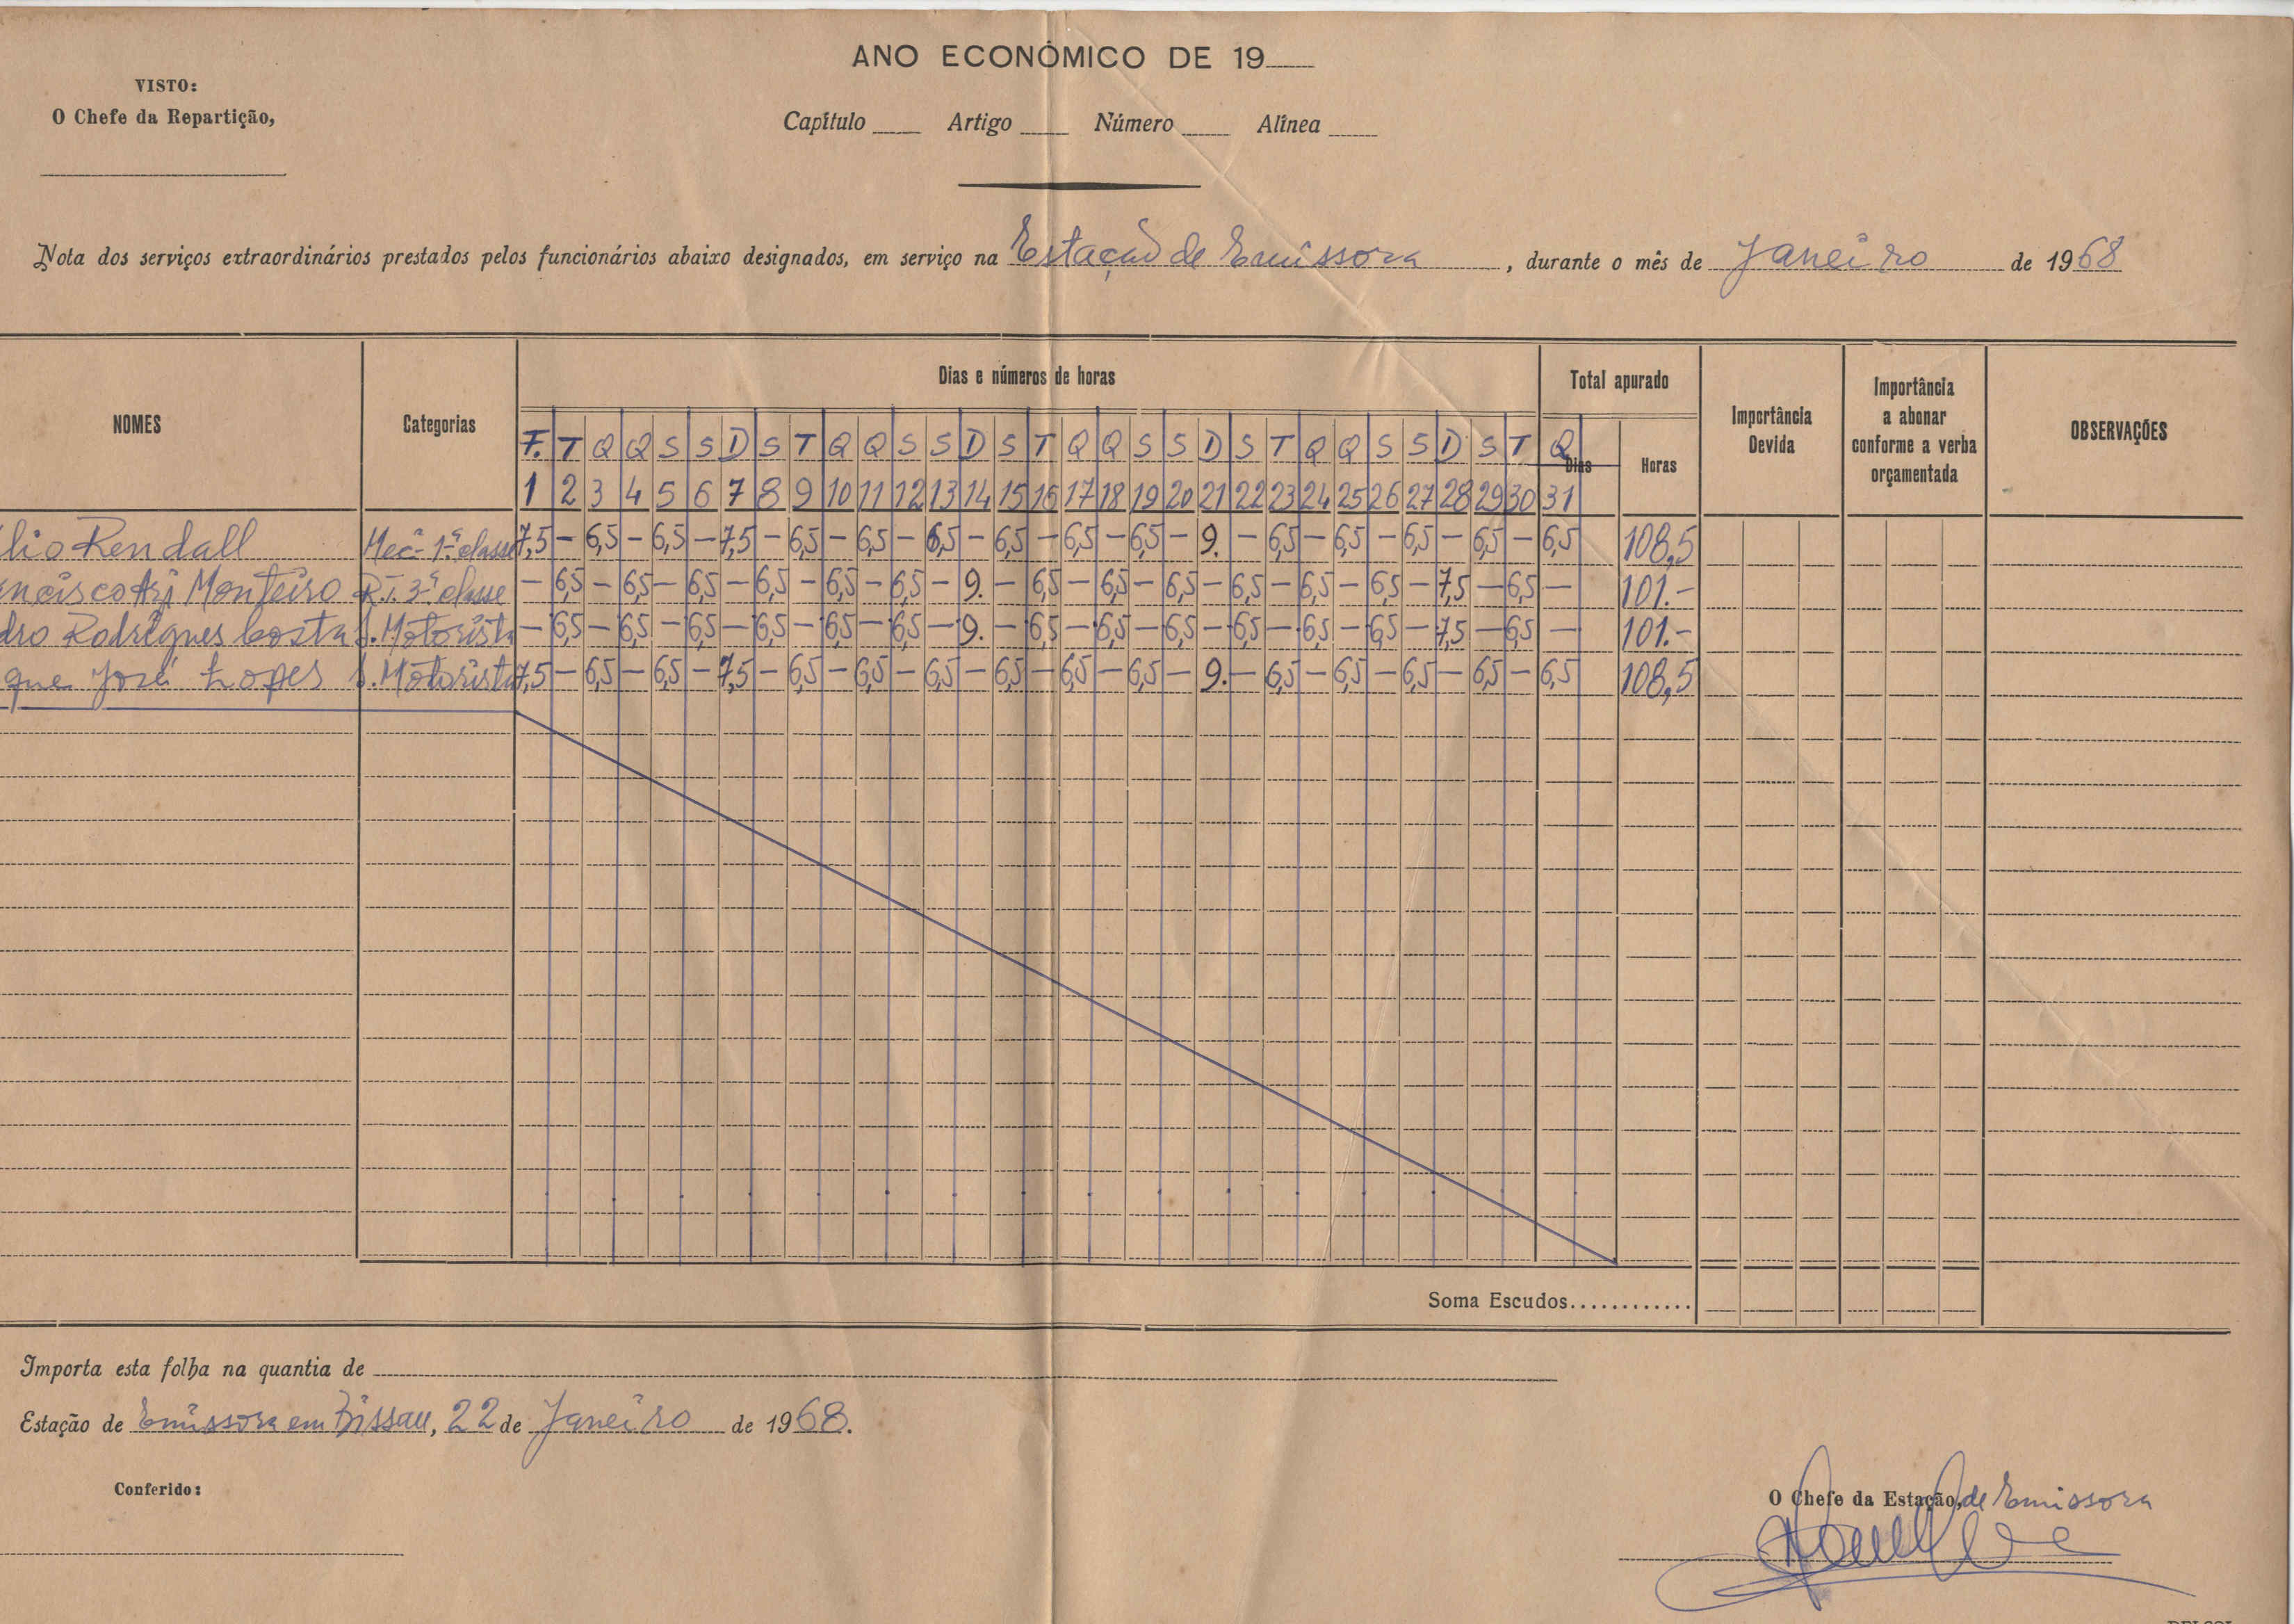 ANO ECONÓMICO DE 19
VISTO:
O Chefe da Repartição,
Capítulo Artigo Número Alínea
Nota dos serviços extraordinários prestados pelos funcionários abaixo designados, em serviço na Estação de Emissora, durante o mês de Janeiro de 1968
NOMES Categorias Dias e números de horas Total apurado Importância Devida Importância a abonar conforme a verba orçamentada OBSERVAÇÕES
F. T Q Q S S D S T Q Q S S D S T Q Q S S D S T Q Q S S D S T Q Dias Horas
1 2 3 4 5 6 7 8 9 10 11 12 13 14 15 16 17 18 19 20 21 22 23 24 25 26 27 28 29 30 31
lio Rendall Mec. 1ª classe 7,5 – 6,5 – 6,5 – 7,5 – 6,5 – 6,5 – 6,5 – 6,5 – 6,5 – 6,5 – 9. – 6,5 – 6,5 – 6,5 – 6,5 – 6,5 108,5
ncisco Monteiro R.T. 3ª classe – 6,5 – 6,5 – 6,5 – 6,5 – 6,5 – 6,5 – 9. – 6,5 – 6,5 – 6,5 – 6,5 – 6,5 – 6,5 – 7,5 – 6,5 – 101.-
dro Rodrigues Costa . Motorista – 6,5 – 6,5 – 6,5 – 6,5 – 6,5 – 6,5 – 9. – 6,5 – 6,5 – 6,5 – 6,5 – 6,5 – 6,5 – 7,5 – 6,5 – 101.-
que José Lopes . Motorista 7,5 – 6,5 – 6,5 – 7,5 – 6,5 – 6,5 – 6,5 – 6,5 – 6,5 – 6,5 – 9. – 6,5 – 6,5 – 6,5 – 6,5 – 6,5 108,5
Soma Escudos............
Importa esta folha na quantia de
Estação de Emissora em Bissau, 22 de Janeiro de 1968.
Conferido:
O Chefe da Estação, de Emissora